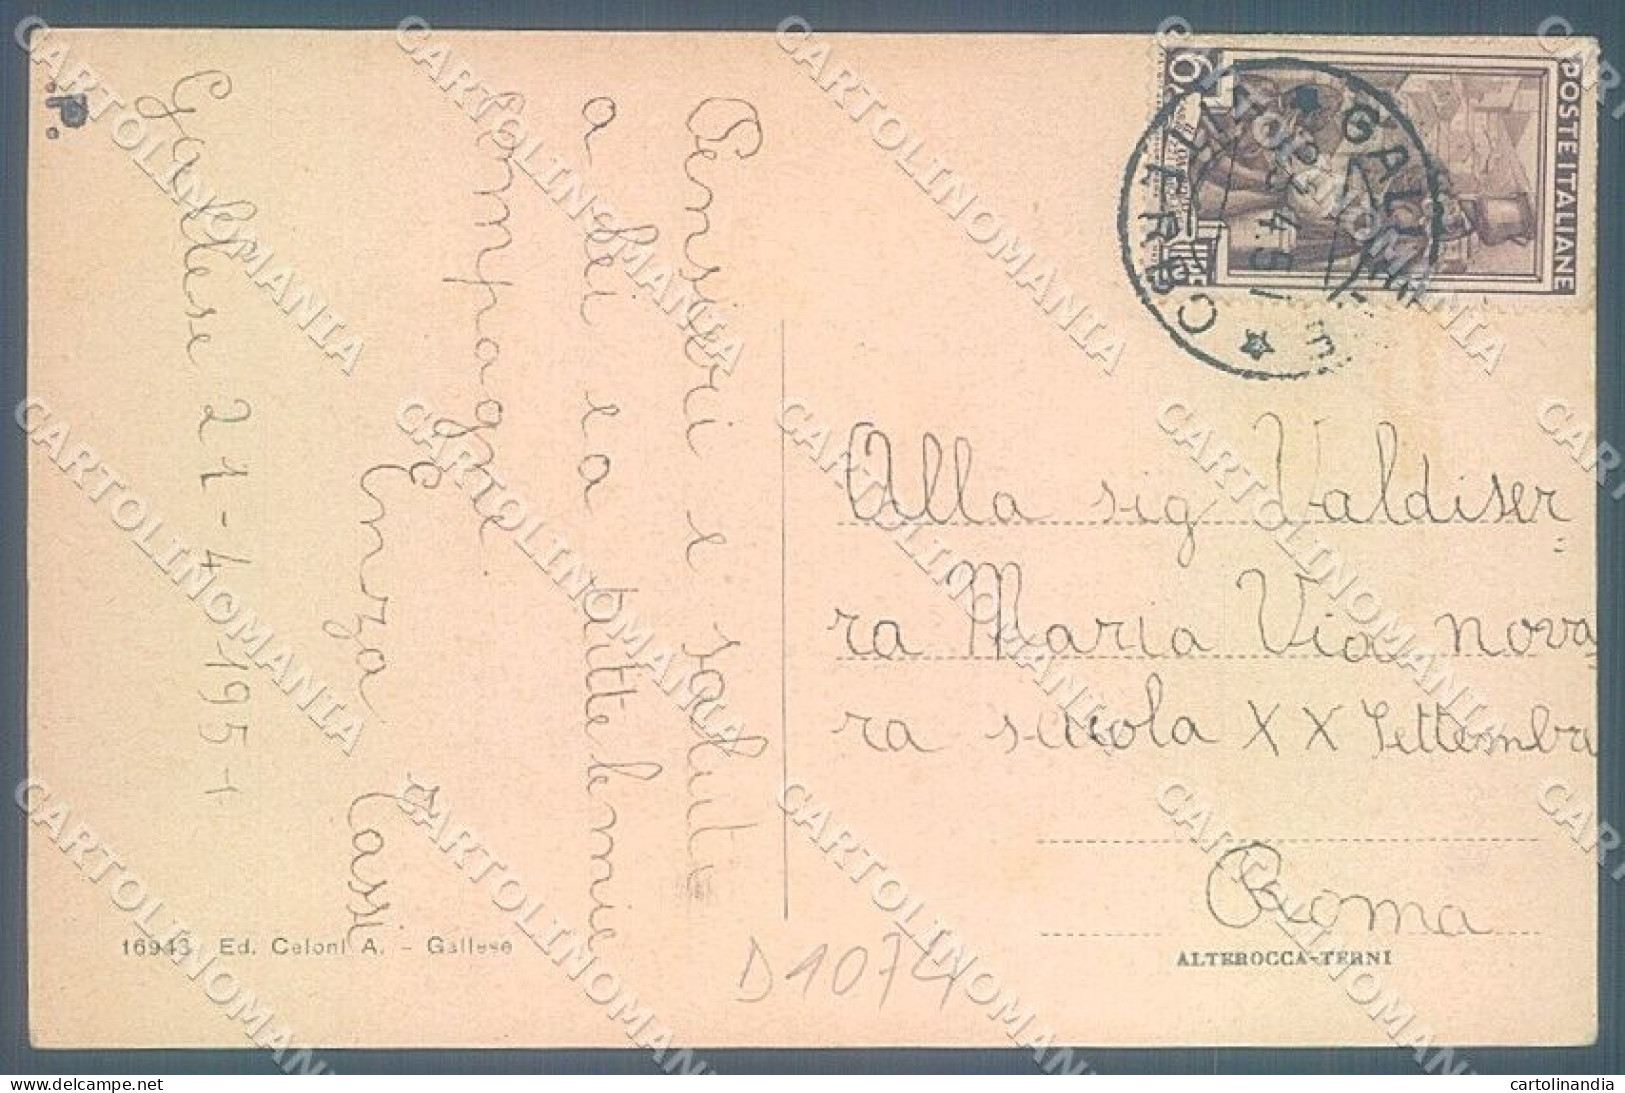 Pensieri e saluti
a lei e a tutte le mie
compagne
Enza Cassi
Gallese 21-4-1951
.P.
POSTE ITALIANE
6
GALLESE
VITERBO
23.4.51
Alla sig Valdiser
ra Maria Via nova
ra scuola XX Settembre
Roma
ALTEROCCA-TERNI
16943 Ed. Celoni A. - Gallese
D1074
CARTOLINOMANIA
cartolinandia